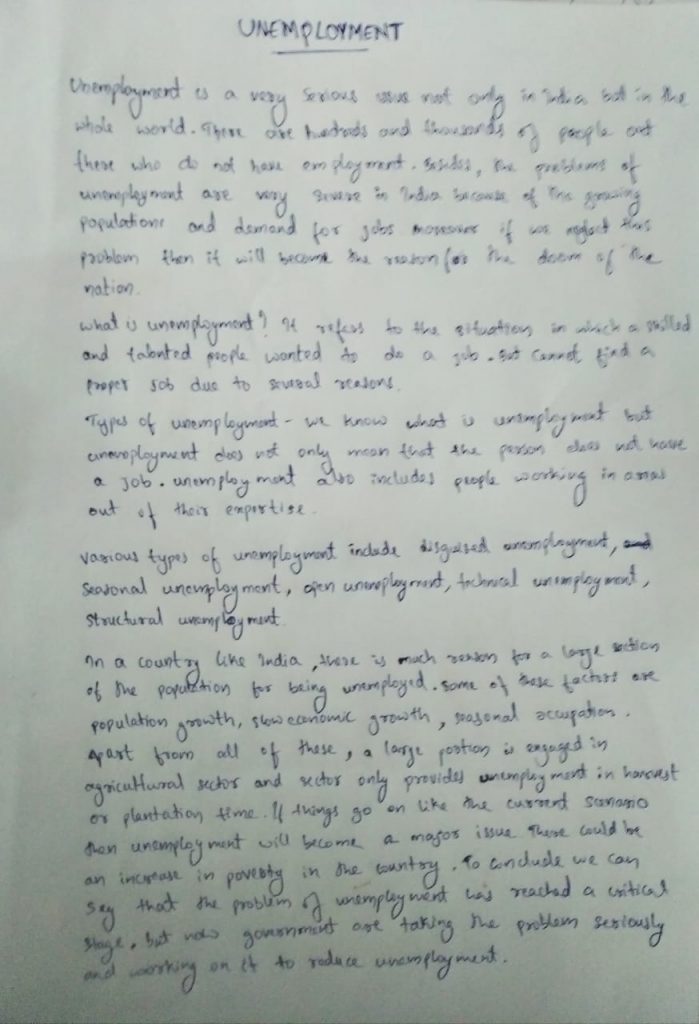 UNEMPLOYMENT
Unemployment is a very serious issue not only in India but in the
whole world. There are hundreds and thousands of people out
there who do not have employment. Besides, the problems of
unemployment are very severe in India because of the growing
populations and demand for jobs moreover if we neglect this
problem then it will become the reason for the doom of the
nation.
What is unemployment? It refers to the situation in which a skilled
and talented people wanted to do a job. But cannot find a
proper job due to several reasons.
Types of unemployment - we know what is unemployment but
unemployment does not only mean that the person does not have
a job. unemployment also includes people working in areas
out of their expertise.
various types of unemployment include disguised unemployment,
seasonal unemployment, open unemployment, technical unemployment,
structural unemployment.
In a country like India, there is much reason for a large section
of the population for being unemployed. Some of these factors are
population growth, slow economic growth, seasonal occupation.
Apart from all of these, a large portion is engaged in
agricultural sector and sector only provides unemployment in harvest
or plantation time. If things go on like the current scenario
then unemployment will become a major issue. There could be
an increase in poverty in the country. To conclude we can
say that the problem of unemployment has reached a critical
stage. but now government are taking the problem seriously
and working on it to reduce unemployment.